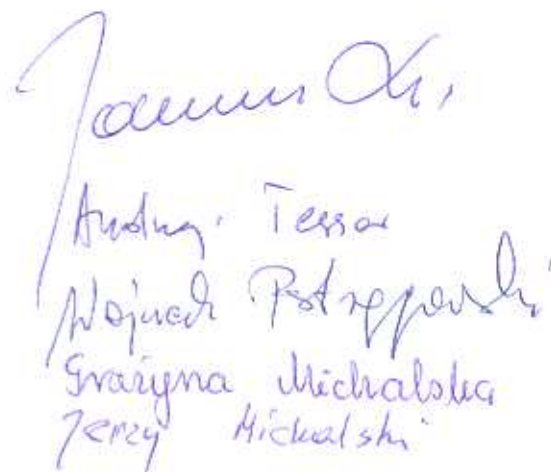 Janusz
Andrzej Tessar
Wojciech
Grażyna Michalska
Jerzy Michalski